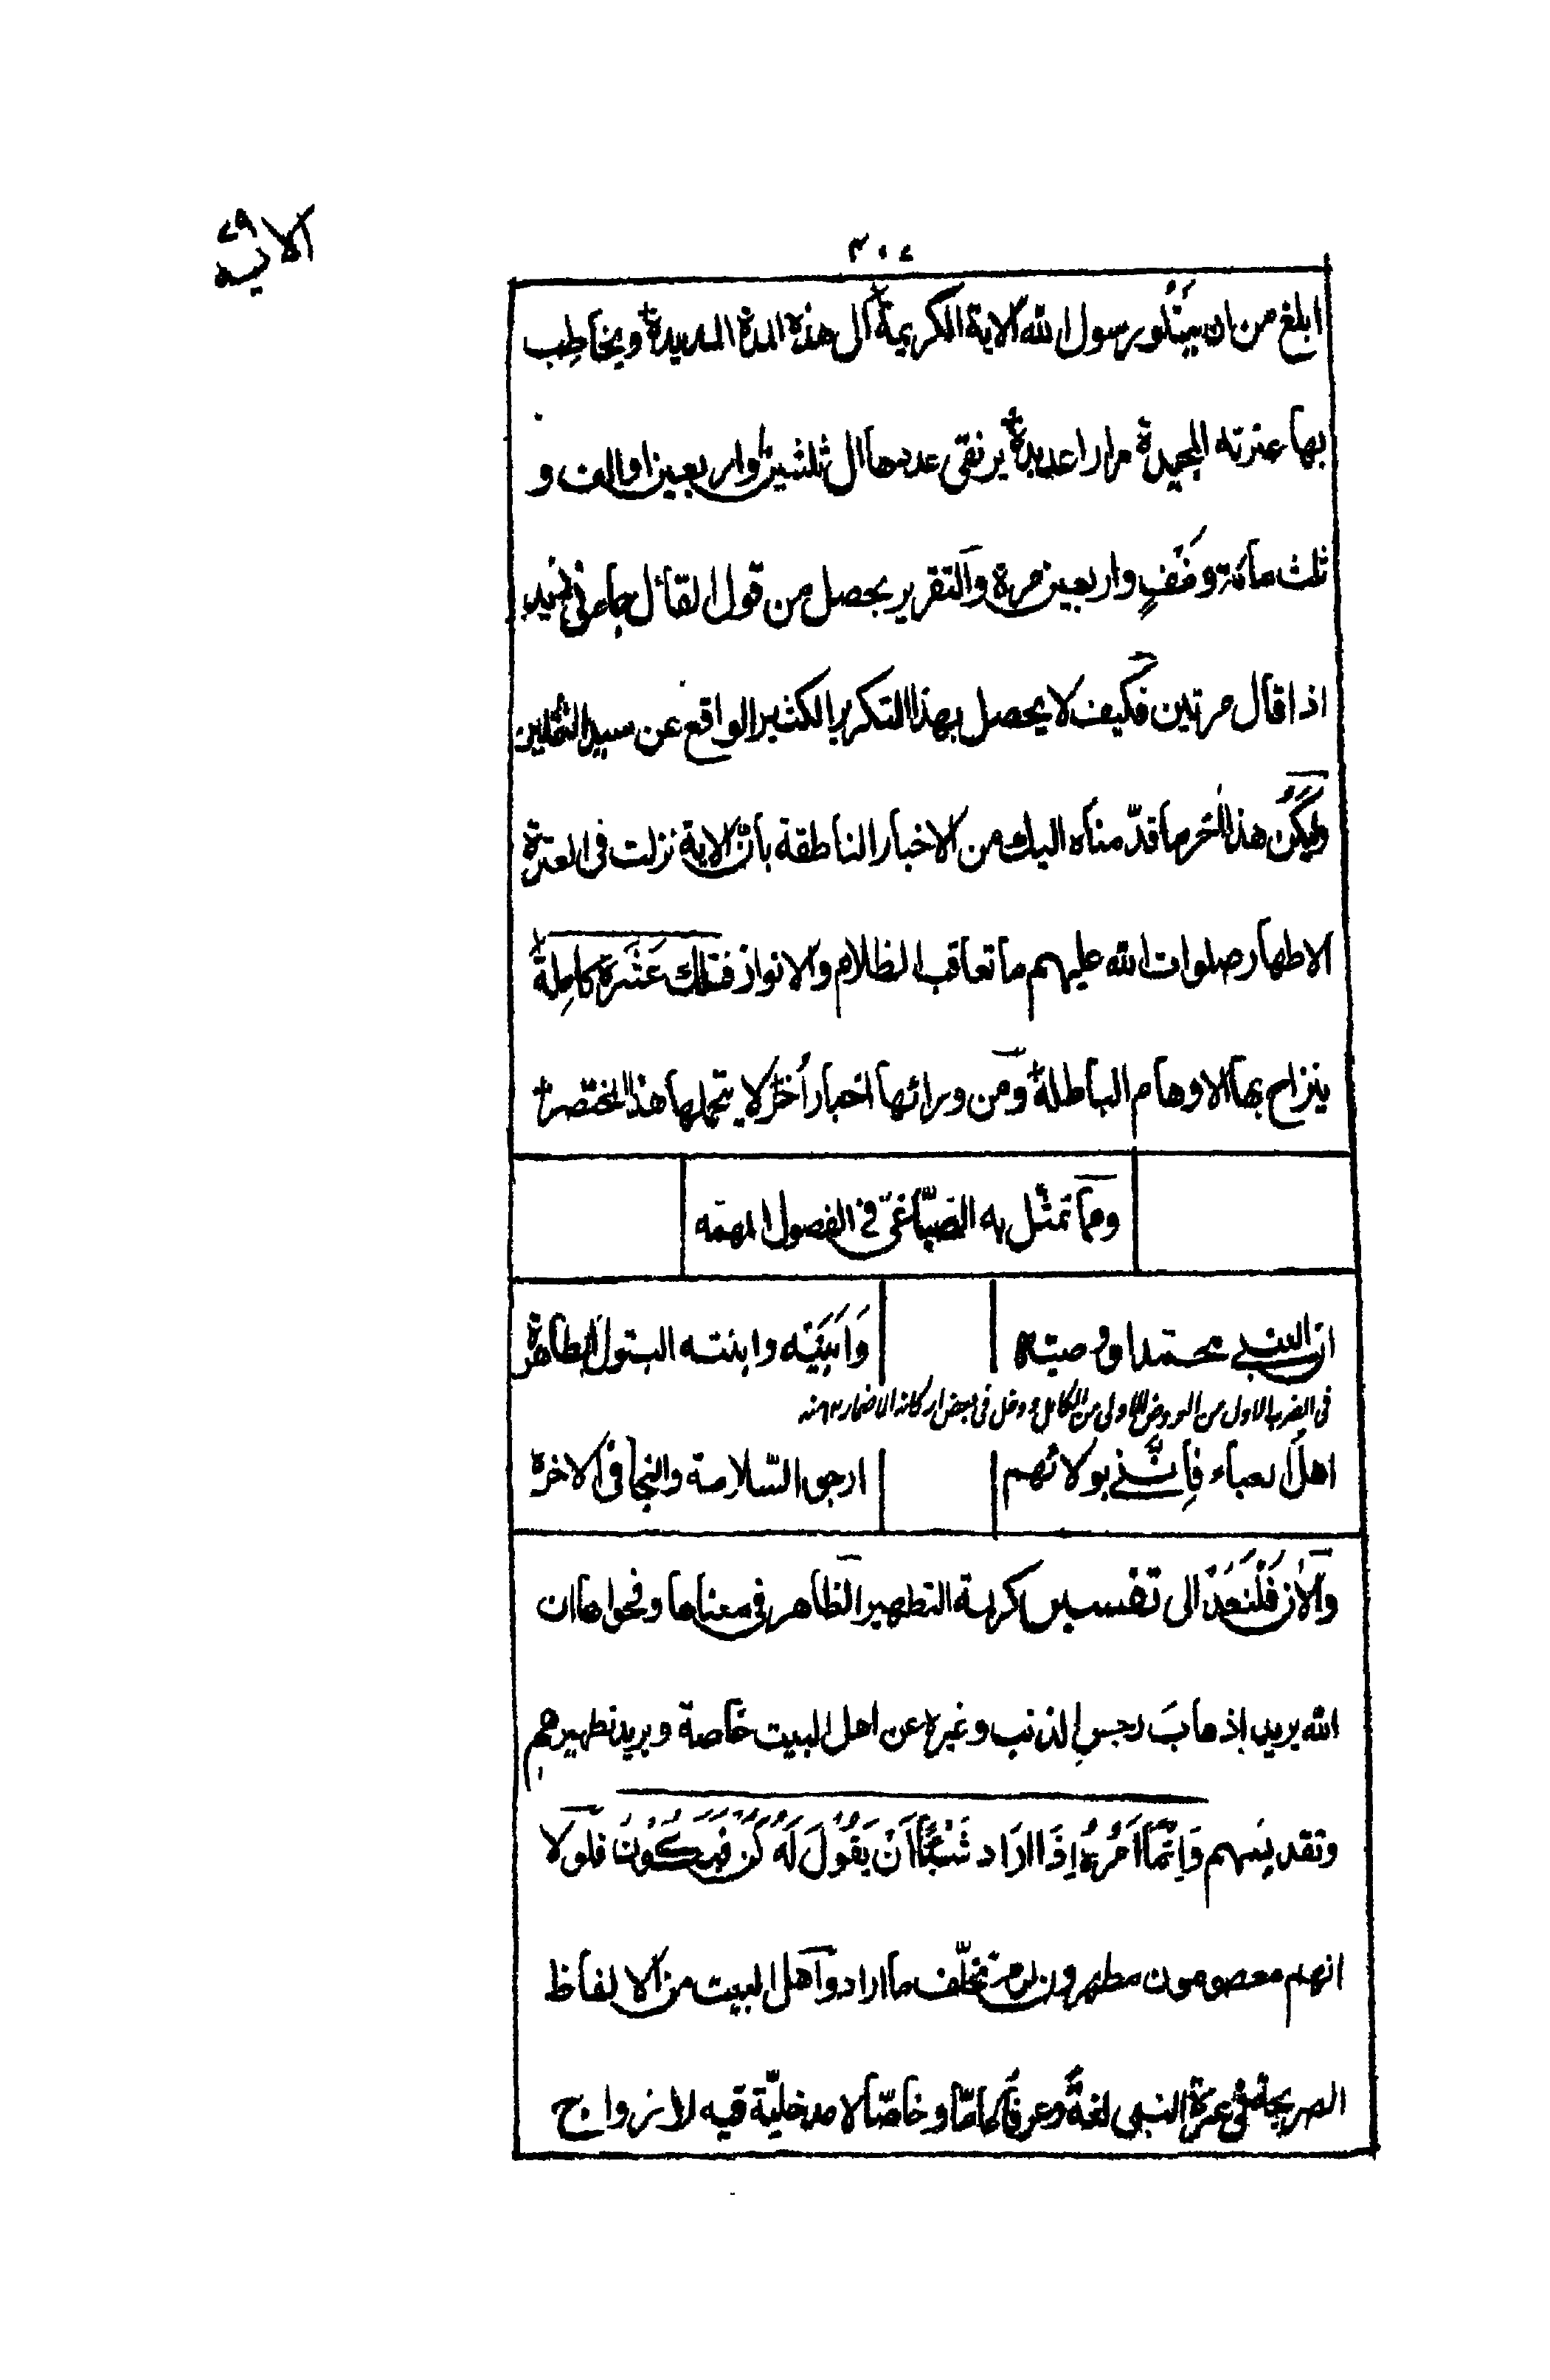 الآية ٧٩
٣٠٤
ابلغ من ان يتلو رسول الله الآية الكريمة الى هذه المدة المديدة ويخاطب
بها عترته المجيدة مرارا عديدة يرتقى عددها الى ثلثين واربعين او الف و
ثلث مائة ونَيِّفٍ واربعين مرة والتقرير يحصل من قول القائل جاءنى زيد
اذا قال مرتين فكيف لا يحصل بهذا التكرير الكثير الواقع عن سيد الثقلين
وليكُن هذا آخر ما قدّمناه اليك من الاخبار الناطقة بانّ الآية نزلت فى العترة
الاطهار صلوات الله عليهم ما تعاقب الظلام والانوار فتلك عَشَرَة كاملةٌ
ينزاح بها الاوهام الباطلة ومن ورائها اخبار أُخَر لا يتحملها هذا المختصر
ومما تمثّل به الصّباغىّ فى الفصول المهمّه
انّ النبىّ محمّدا ووصيّه
وَابنَيْه وابنته البتول الطاهرة
فى الضرب الاول من العروض الاولى من الكامل ودخل فى بعض اركانه الاضمار ١٢ منه
اهل العباء فإنّنى بولائهم
ارجو السّلامة والنجا فى الآخرة
والآن فَلْنَعُدْ الى تفسير كريمة التطهير الظاهر فى معناها وفحواها ان
الله يريد إذهابَ رجسِ الذنب وغيره عن اهل البيت خاصة ويريد تطهيرهم
وتقديسهم وَاِنَّمَا اَمْرُهُ اِذَا اَرَادَ شَيْئًا اَنْ يَقُولَ لَهُ كُنْ فَيَكُونُ فلولا
انهم معصومون مطهرون لزم تخلّف ما اراد واهل البيت من الالفاظ
الصريحة فى عترة النبى لغةً وعرفا عامّا وخاصّا لا مدخليّة فيه لازواج